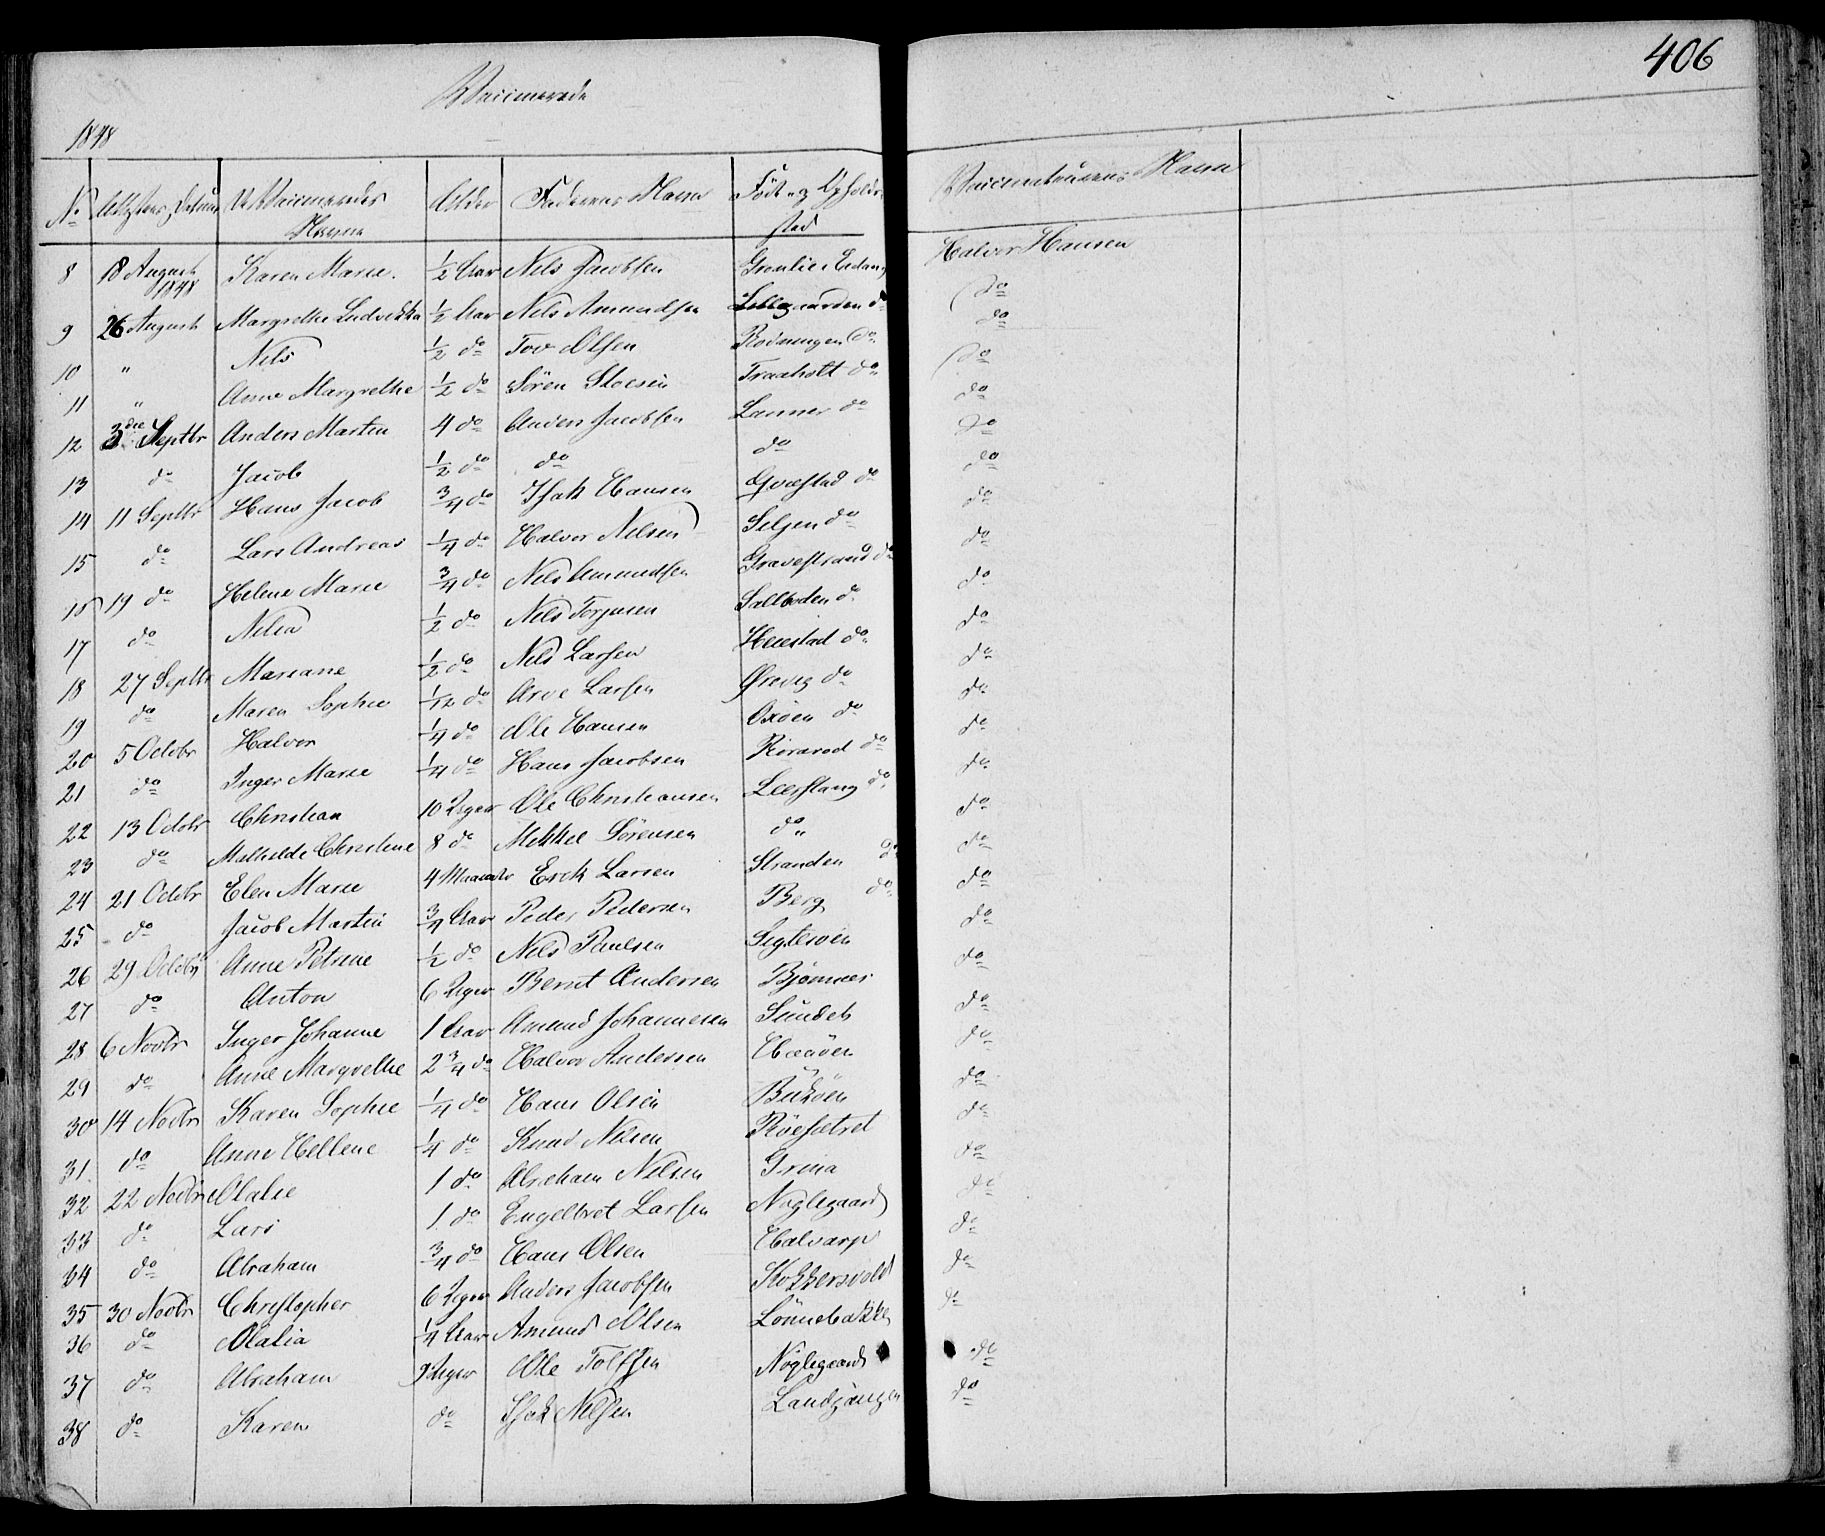 406
Vaccinerede
1848
No Attestens Datum De Vaccineredes Navne Alder Faderens Navn Føde- og Opholds- sted Vaccinateurens Navn
8 18 August 1848 Karen Marie. 1/2 Aar Nils Jacobsen Grønlie i Eidang Halvor Hansen
9 26 August Margrethe Ludvikka 1/2 Aar Nils Amundsen Lillegaarden do do
10 " Nils 1/2 do Tov Olsen Rødningen do do
11 " Anne Margrethe 1/2 do Sören Stoesen Traaholt do do
12 3die Septbr Anders Martin 4 do Anders Jacobsen Lanner do do
13 do Jacob 1/2 do do do do
14 11 Septbr Hans Jacob 3/4 do Isak Hansen Qvæstad do do
15 do Lars Andreas 1/4 do Halvor Nilsen Seljen do do
16 19 do Helene Marie 3/4 do Nils Amundsen Gravestrand do do
17 do Nilia 1/2 do Nils Torjusen Saltboden do do
18 27 Septbr Mariane 1/2 do Nils Larsen Heiestad do do
19 do Maren Sophie 1/12 do Arve Larsen Ørvig do do
20 5 Octbr Halvor 1/4 do Ole Hansen Oxöen do do
21 do Inger Marie 1/4 do Hans Jacobsen Rörared do do
22 13 Octobr Christian 10 Uger Ole Christiansen Leerstang do do
23 do Mathilde Christine 8 do Mikkel Sörensen do do
24 21 Octbr Elen Marie 4 Maaneder Erik Larsen Stranden do do
25 do Jacob Martin 3/4 Aar Peder Pedersen Berg do do
26 29 Octobr Anne Petrine 1/2 do Nils Paulsen Sigtesöen do
27 do Anton 6 Uger Bernt Andersen Bjønnæs do
28 6 Novbr Inger Johanne 1 Aar Amund Johannesen Sundet do
29 do Anne Margrethe 2 3/4 do Halvor Andersen Haaöen do
30 14 Novbr Karen Sophie 1/4 do Hans Olsen Bukøen do
31 do Anne Hellene 1/4 do Knud Nilsen Röesætret do
32 22 Novbr Olalie 1 do Abraham Nilsen Grina do
33 do Lars 1 do Engelbret Larsen Nøglegaard do
34 do Abraham 3/4 do Hans Olsen Halvarp do
35 30 Novbr Christopher 6 Uger Anders Jacobsen Stokkersvold do
36 do Olalia 1/4 Aar Amund Olsen Lönnebakke do
37 do Abraham 9 Uger Ole Tolfsen Nøglegaard do
38 do Karen do Isak Nilsen Landgangen do